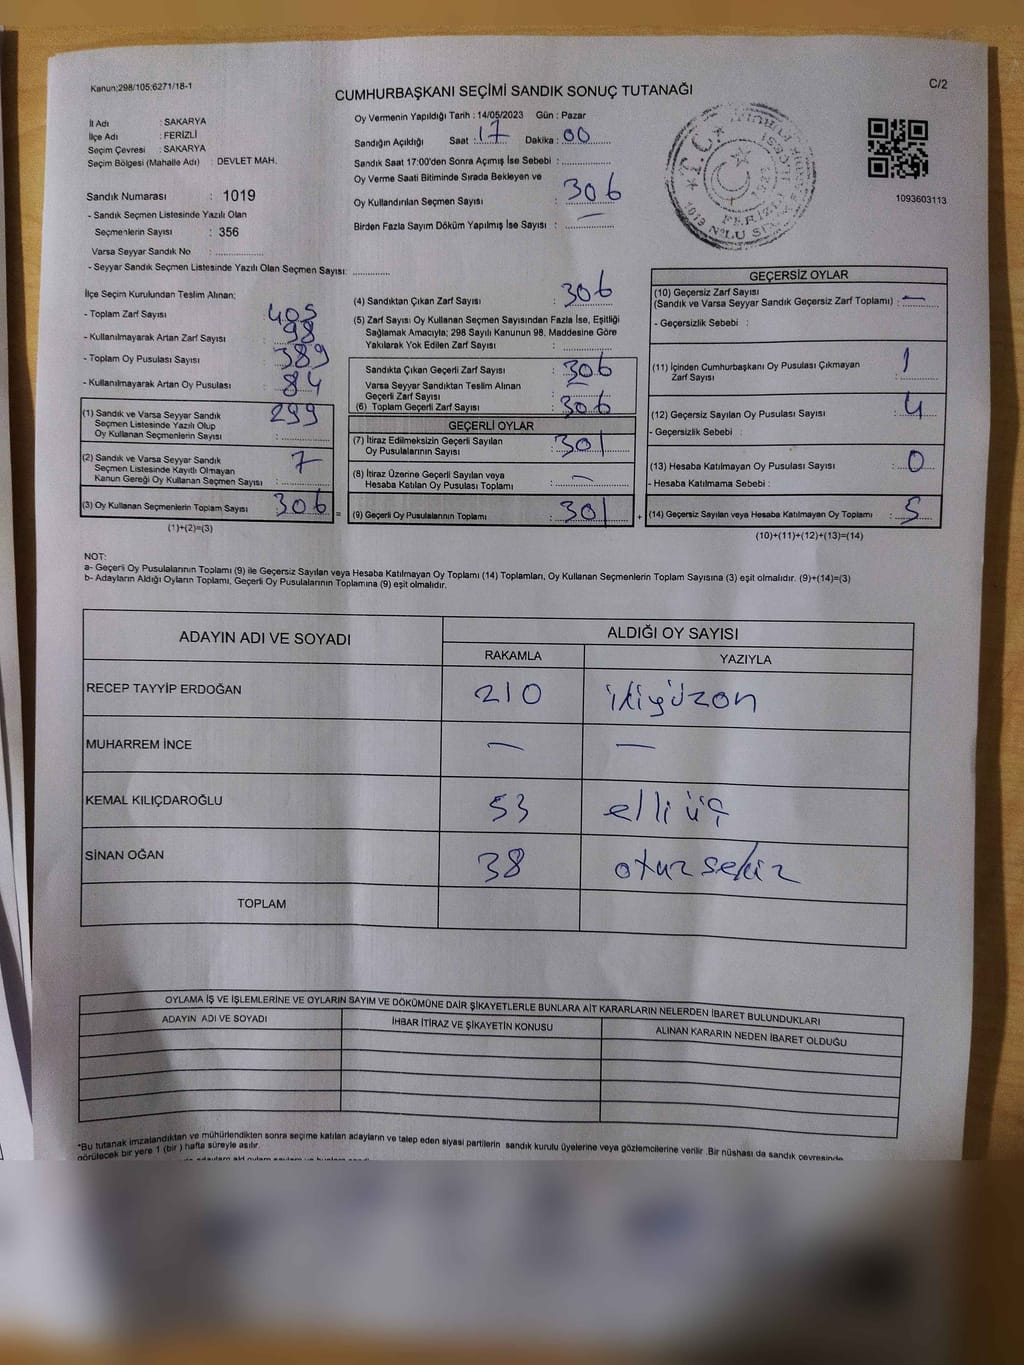 Kanun;298/105;6271/18-1
C/2
CUMHURBAŞKANI SEÇİMİ SANDIK SONUÇ TUTANAĞI
İl Adı : SAKARYA
İlçe Adı : FERİZLİ
Seçim Çevresi : SAKARYA
Seçim Bölgesi (Mahalle Adı) : DEVLET MAH.
Sandık Numarası : 1019
- Sandık Seçmen Listesinde Yazılı Olan
Seçmenlerin Sayısı : 356
Varsa Seyyar Sandık No : ................
- Seyyar Sandık Seçmen Listesinde Yazılı Olan Seçmen Sayısı: ............
Oy Vermenin Yapıldığı Tarih : 14/05/2023 Gün : Pazar
Sandığın Açıldığı Saat : 17 Dakika : 00
Sandık Saat 17:00'den Sonra Açımış İse Sebebi : ................
Oy Verme Saati Bitiminde Sırada Bekleyen ve
Oy Kullandırılan Seçmen Sayısı : 306
Birden Fazla Sayım Döküm Yapılmış İse Sayısı : —
T.C.
1093603113
İlçe Seçim Kurulundan Teslim Alınan;
- Toplam Zarf Sayısı 405
- Kullanılmayarak Artan Zarf Sayısı : 98
- Toplam Oy Pusulası Sayısı : 389
- Kullanılmayarak Artan Oy Pusulası : 84
(1) Sandık ve Varsa Seyyar Sandık
Seçmen Listesinde Yazılı Olup
Oy Kullanan Seçmenlerin Sayısı : 299
(2) Sandık ve Varsa Seyyar Sandık
Seçmen Listesinde Kayıtlı Olmayan
Kanun Gereği Oy Kullanan Seçmen Sayısı : 7
(3) Oy Kullanan Seçmenlerin Toplam Sayısı : 306
(1)+(2)=(3)
(4) Sandıktan Çıkan Zarf Sayısı : 306
(5) Zarf Sayısı Oy Kullanan Seçmen Sayısından Fazla İse, Eşitliği
Sağlamak Amacıyla; 298 Sayılı Kanunun 98. Maddesine Göre
Yakılarak Yok Edilen Zarf Sayısı : ................
Sandıkta Çıkan Geçerli Zarf Sayısı : 306
Varsa Seyyar Sandıktan Teslim Alınan
Geçerli Zarf Sayısı : —
(6) Toplam Geçerli Zarf Sayısı : 306
GEÇERLİ OYLAR
(7) İtiraz Edilmeksizin Geçerli Sayılan
Oy Pusulalarının Sayısı : 301
(8) İtiraz Üzerine Geçerli Sayılan veya
Hesaba Katılan Oy Pusulası Toplamı : —
(9) Geçerli Oy Pusulalarının Toplamı : 301
GEÇERSİZ OYLAR
(10) Geçersiz Zarf Sayısı
(Sandık ve Varsa Seyyar Sandık Geçersiz Zarf Toplamı) : —
- Geçersizlik Sebebi :
(11) İçinden Cumhurbaşkanı Oy Pusulası Çıkmayan
Zarf Sayısı : 1
(12) Geçersiz Sayılan Oy Pusulası Sayısı : 4
- Geçersizlik Sebebi :
(13) Hesaba Katılmayan Oy Pusulası Sayısı : 0
- Hesaba Katılmama Sebebi :
(14) Geçersiz Sayılan veya Hesaba Katılmayan Oy Toplamı : 5
(10)+(11)+(12)+(13)=(14)
NOT:
a- Geçerli Oy Pusulalarının Toplamı (9) ile Geçersiz Sayılan veya Hesaba Katılmayan Oy Toplamı (14) Toplamları, Oy Kullanan Seçmenlerin Toplam Sayısına (3) eşit olmalıdır. (9)+(14)=(3)
b- Adayların Aldığı Oyların Toplamı, Geçerli Oy Pusulalarının Toplamına (9) eşit olmalıdır.
ADAYIN ADI VE SOYADI
ALDIĞI OY SAYISI
RAKAMLA YAZIYLA
RECEP TAYYİP ERDOĞAN 210 ikiyüzon
MUHARREM İNCE — —
KEMAL KILIÇDAROĞLU 53 elli üç
SİNAN OĞAN 38 otuz sekiz
TOPLAM
OYLAMA İŞ VE İŞLEMLERİNE VE OYLARIN SAYIM VE DÖKÜMÜNE DAİR ŞİKAYETLERLE BUNLARA AİT KARARLARIN NELERDEN İBARET BULUNDUKLARI
ADAYIN ADI VE SOYADI İHBAR İTİRAZ VE ŞİKAYETİN KONUSU ALINAN KARARIN NEDEN İBARET OLDUĞU
*Bu tutanak imzalandıktan ve mühürlendikten sonra seçime katılan adayların ve talep eden siyasi partilerin sandık kurulu üyelerine veya gözlemcilerine verilir .Bir nüshası da sandık çevresinde
görülecek bir yere 1 (bir) hafta süreyle asılır.